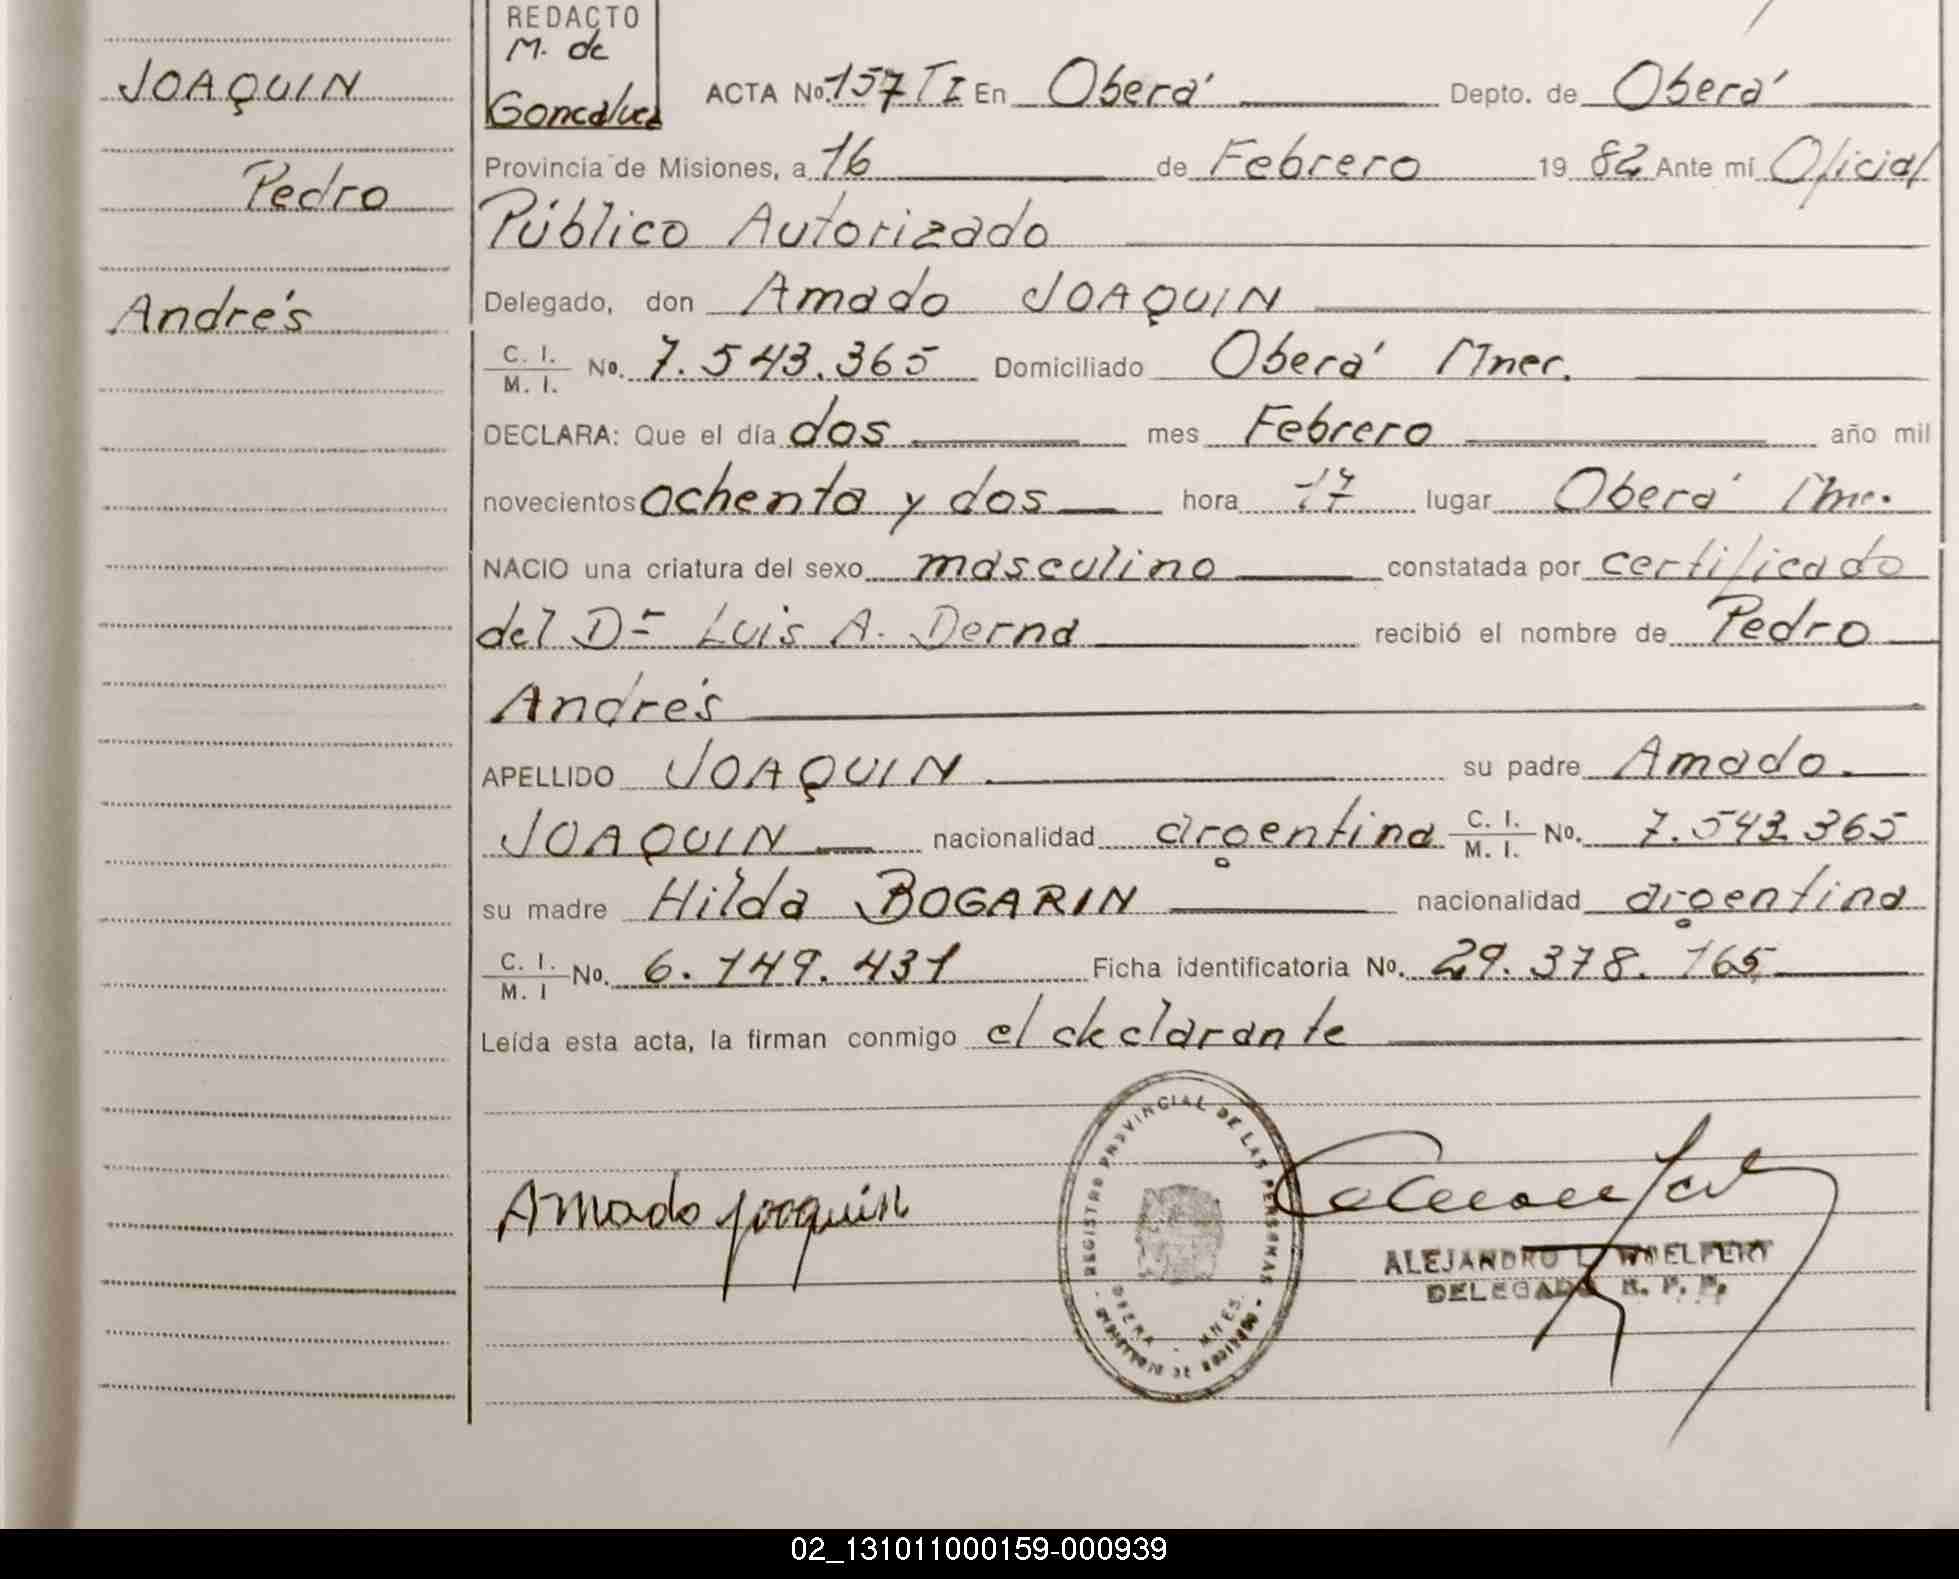 JOAQUIN
Pedro
Andrés
REDACTO
M. de
Goncalves
ACTA No. 157 TI En Oberá Depto. de Oberá
Provincia de Misiones, a 16 de Febrero 19 82 Ante mí Oficial
Público Autorizado
Delegado, don Amado JOAQUIN
C. I. / M. I. No. 7.543.365 Domiciliado Oberá Mnes.
DECLARA: Que el día dos mes Febrero año mil
novecientos ochenta y dos hora 17 lugar Oberá Mnes.
NACIO una criatura del sexo masculino constatada por certificado
del Dr Luis A. Derna recibió el nombre de Pedro
Andrés
APELLIDO JOAQUIN su padre Amado
JOAQUIN nacionalidad argentina C. I. / M. I. No. 7.543.365
su madre Hilda BOGARIN nacionalidad argentina
C. I. / M. I No. 6.149.431 Ficha identificatoria No. 29.378.165
Leída esta acta, la firman conmigo el declarante
Amado Joaquin
REGISTRO PROVINCIAL DE LAS PERSONAS
OBERA - MNES.
ALEJANDRO L. WOELFERT
DELEGADO R. P. P.
02_131011000159-000939